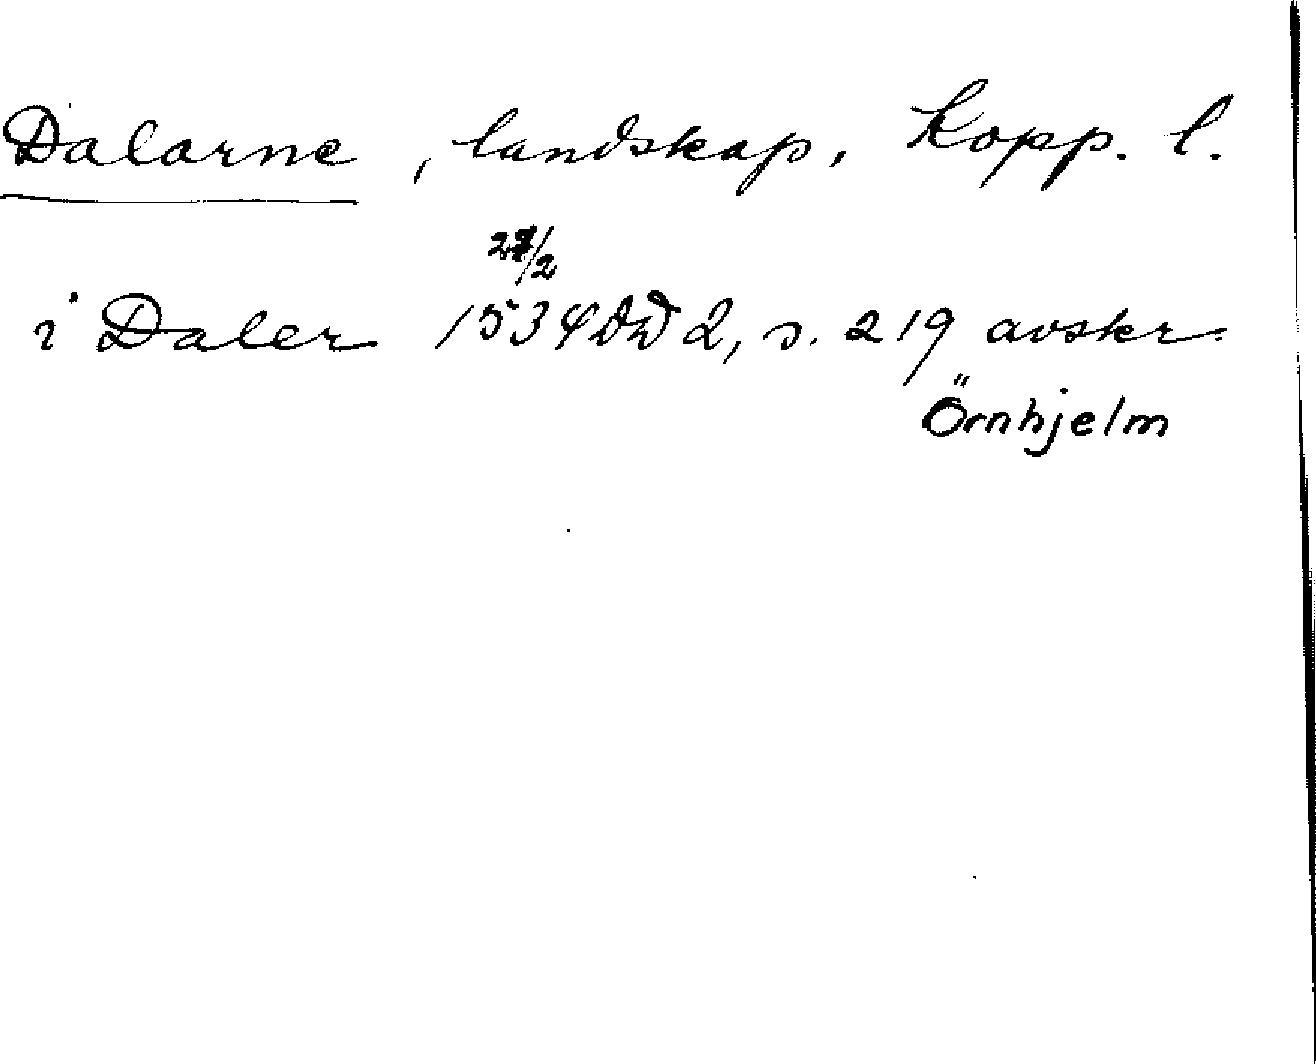 Dalarne, landskap, Kopp. l.
2/2
i Daler 1534 DD 2, s. 219 avskr.
Örnhjelm